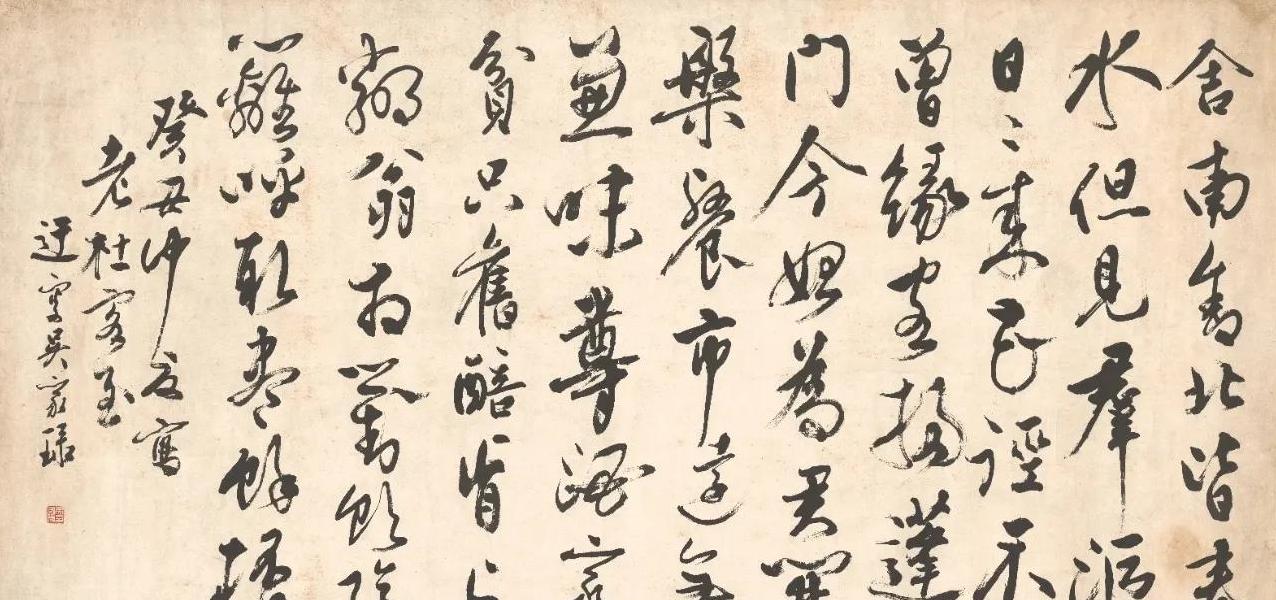 舍南舍北皆春
水但見羣鷗
日〻来花徑不
曾緣客掃蓬
門今始為君開
槃飧市遠無
兼味尊酒家
貧只舊醅肯与
鄰翁相對飲隔
籬呼取盡餘杯
癸丑仲夏寫
老杜客至
迂叟吳家琭